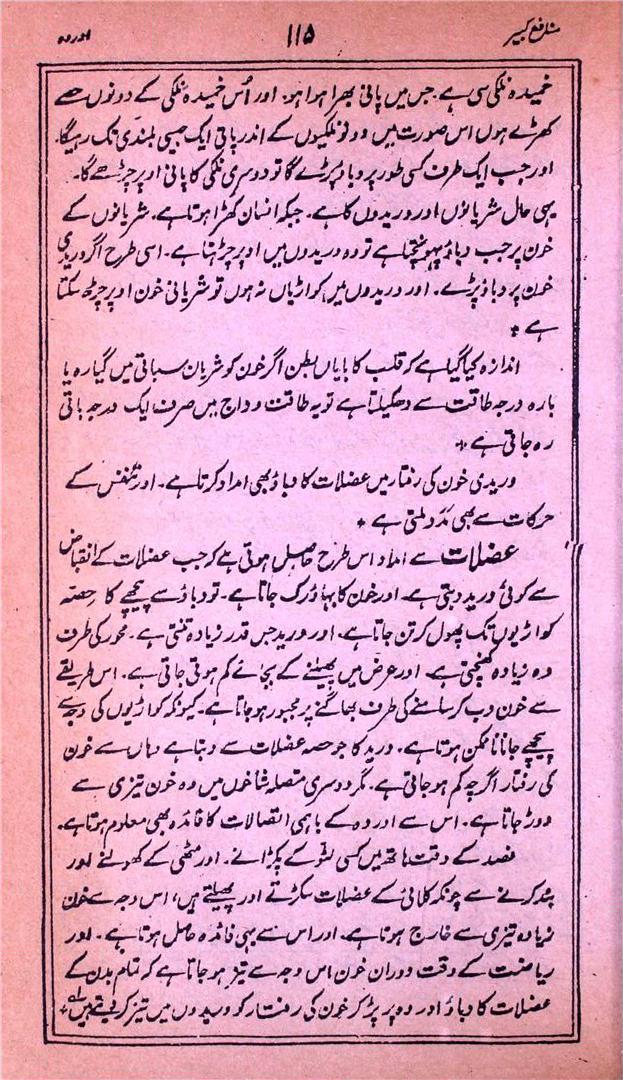 منافع کبیر ۱۱۵ اوردہ
خمیدہ نلکی سی ہے۔ جس میں پانی بھرا ہوا ہو۔ اور اُس خمیدہ نلکی کے دونوں حصے
کھڑے ہوں اس صورت میں دونو نلکیوں کے اندر پانی ایک جیسی بلندی تک رہیگا۔
اور جب ایک طرف کسی طور پر دباؤ پڑے گا تو دوسری نلکی کا پانی اوپر چڑھے گا۔
یہی حال شریانوں اور وریدوں کا ہے۔ جبکہ انسان کھڑا ہوتا ہے۔ شریانوں کے
خون پر جب دباؤ پہونچتا ہے تو وہ وریدوں میں اوپر چڑہتا ہے۔ اسی طرح اگر وریدی
خون پر دباؤ پڑے۔ اور وریدوں میں کواڑیاں نہ ہوں تو شریانی خون اوپر چڑھ سکتا
ہے ٭
اندازہ کیا گیا ہے کہ قلب کا بایاں بطن اگر خون کو شریان سباتی میں گیارہ یا
بارہ درجہ طاقت سے دھکیلتا ہے تو یہ طاقت وداج میں صرف ایک درجہ باقی
رہ جاتی ہے ٭
وریدی خون کی رفتار میں عضلات کا دباؤ بھی امداد کرتا ہے۔ اور تنفس کے
حرکات سے بھی مدد ملتی ہے ٭
عضلات سے امداد اس طرح حاصل ہوتی ہے کہ جب عضلات کے انقباض
سے کوئی ورید دبتی ہے۔ اور خون کا بہاؤ رک جاتا ہے۔ تو دباؤ سے پیچھے کا حصّہ
کواڑیوں تک پھول کر تن جاتا ہے۔ اور ورید جس قدر زیادہ تنتی ہے۔ محور کی طرف
وہ زیادہ کھنچتی ہے۔ اور عرض میں پھیلنے کے بجائے کم ہوتی جاتی ہے۔ اس طریقے
سے خون دب کر سامنے کی طرف بھاگنے پر مجبور ہو جاتا ہے۔ کیونکہ کواڑیوں کی وجہ سے
پیچھے جانا ناممکن ہوتا ہے۔ ورید کا جو حصہ عضلات سے دبتا ہے وہاں سے خون
کی رفتار اگرچہ کم ہو جاتی ہے۔ مگر دوسری متصلہ شاخوں میں وہ خون تیزی سے
دوڑ جاتا ہے۔ اس سے اوردہ کے باہمی اتصالات کا فائدہ بھی معلوم ہوتا ہے۔
فصد کے وقت ہاتھ میں کسی لٹو کے پکڑانے۔ اور مٹھی کے کھولنے اور
بند کرنے سے چونکہ کلائی کے عضلات سکڑتے اور پھیلتے ہیں، اس وجہ سے خون
زیادہ تیزی سے خارج ہوتا ہے۔ اور اس سے یہی فائدہ حاصل ہوتا ہے۔ اور
ریاضت کے وقت دوران خون اس وجہ سے تیز ہو جاتا ہے کہ تمام بدن کے
عضلات کا دباؤ اوردہ پر پڑ کر خون کی رفتار کو وریدوں میں تیز کر دیتے ہیں